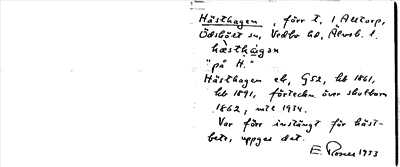 Hästhagen, förr t, 1 Alltorp,
Ödskölt sn, Vedbo hd, Älvsb. l.
hästhagan
"på H."
Hästhagen eb, G52, hb 1861,
hb 1891, förteckn. över skattorn
1862, mtl 1934.
Var förr instängt för häst-
bete, uppges det.
E. 1933